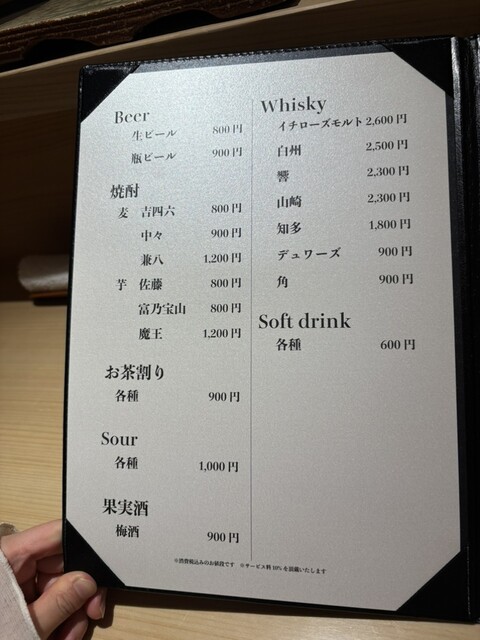 Beer
生ビール 800円
瓶ビール 900円
焼酎
麦 吉四六 800円
中々 900円
兼八 1,200円
芋 佐藤 800円
富乃宝山 800円
魔王 1,200円
お茶割り
各種 900円
Sour
各種 1,000円
果実酒
梅酒 900円
Whisky
イチローズモルト 2,600円
白州 2,500円
響 2,300円
山崎 2,300円
知多 1,800円
デュワーズ 900円
角 900円
Soft drink
各種 600円
※消費税込みのお値段です ※サービス料10%を頂戴いたします